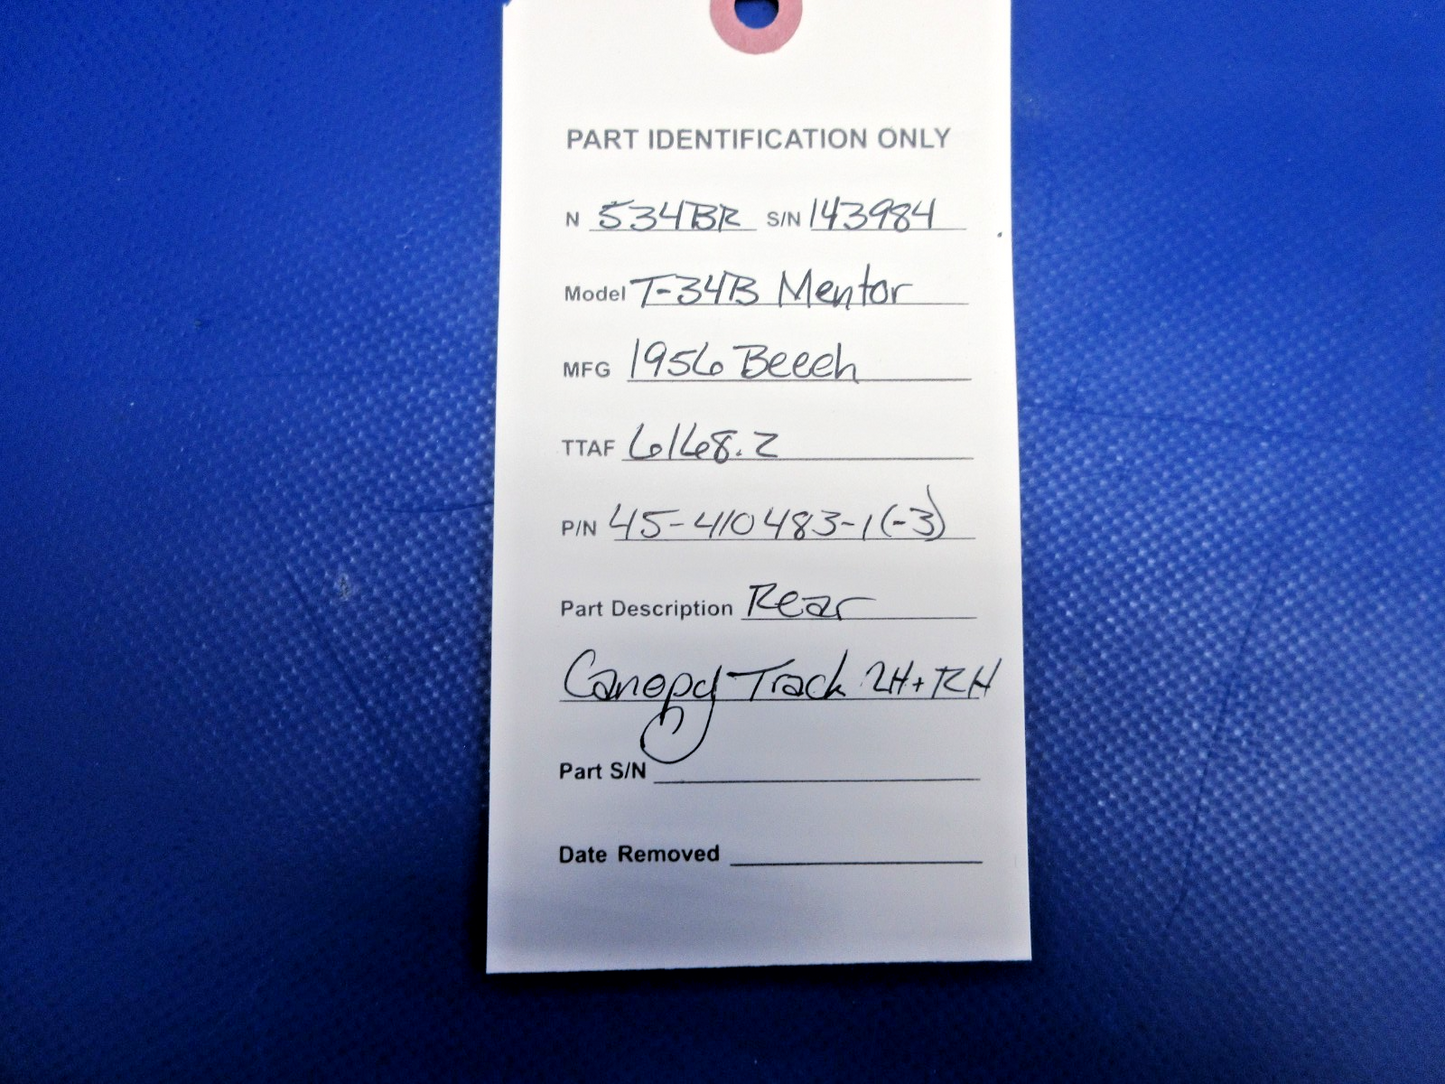 PART IDENTIFICATION ONLY
N 534BR S/N 143984
Model T-34B Mentor
MFG 1956 Beech
TTAF 6168.2
P/N 45-410483-1(-3)
Part Description Rear
Canopy Track LH+RH
Part S/N
Date Removed